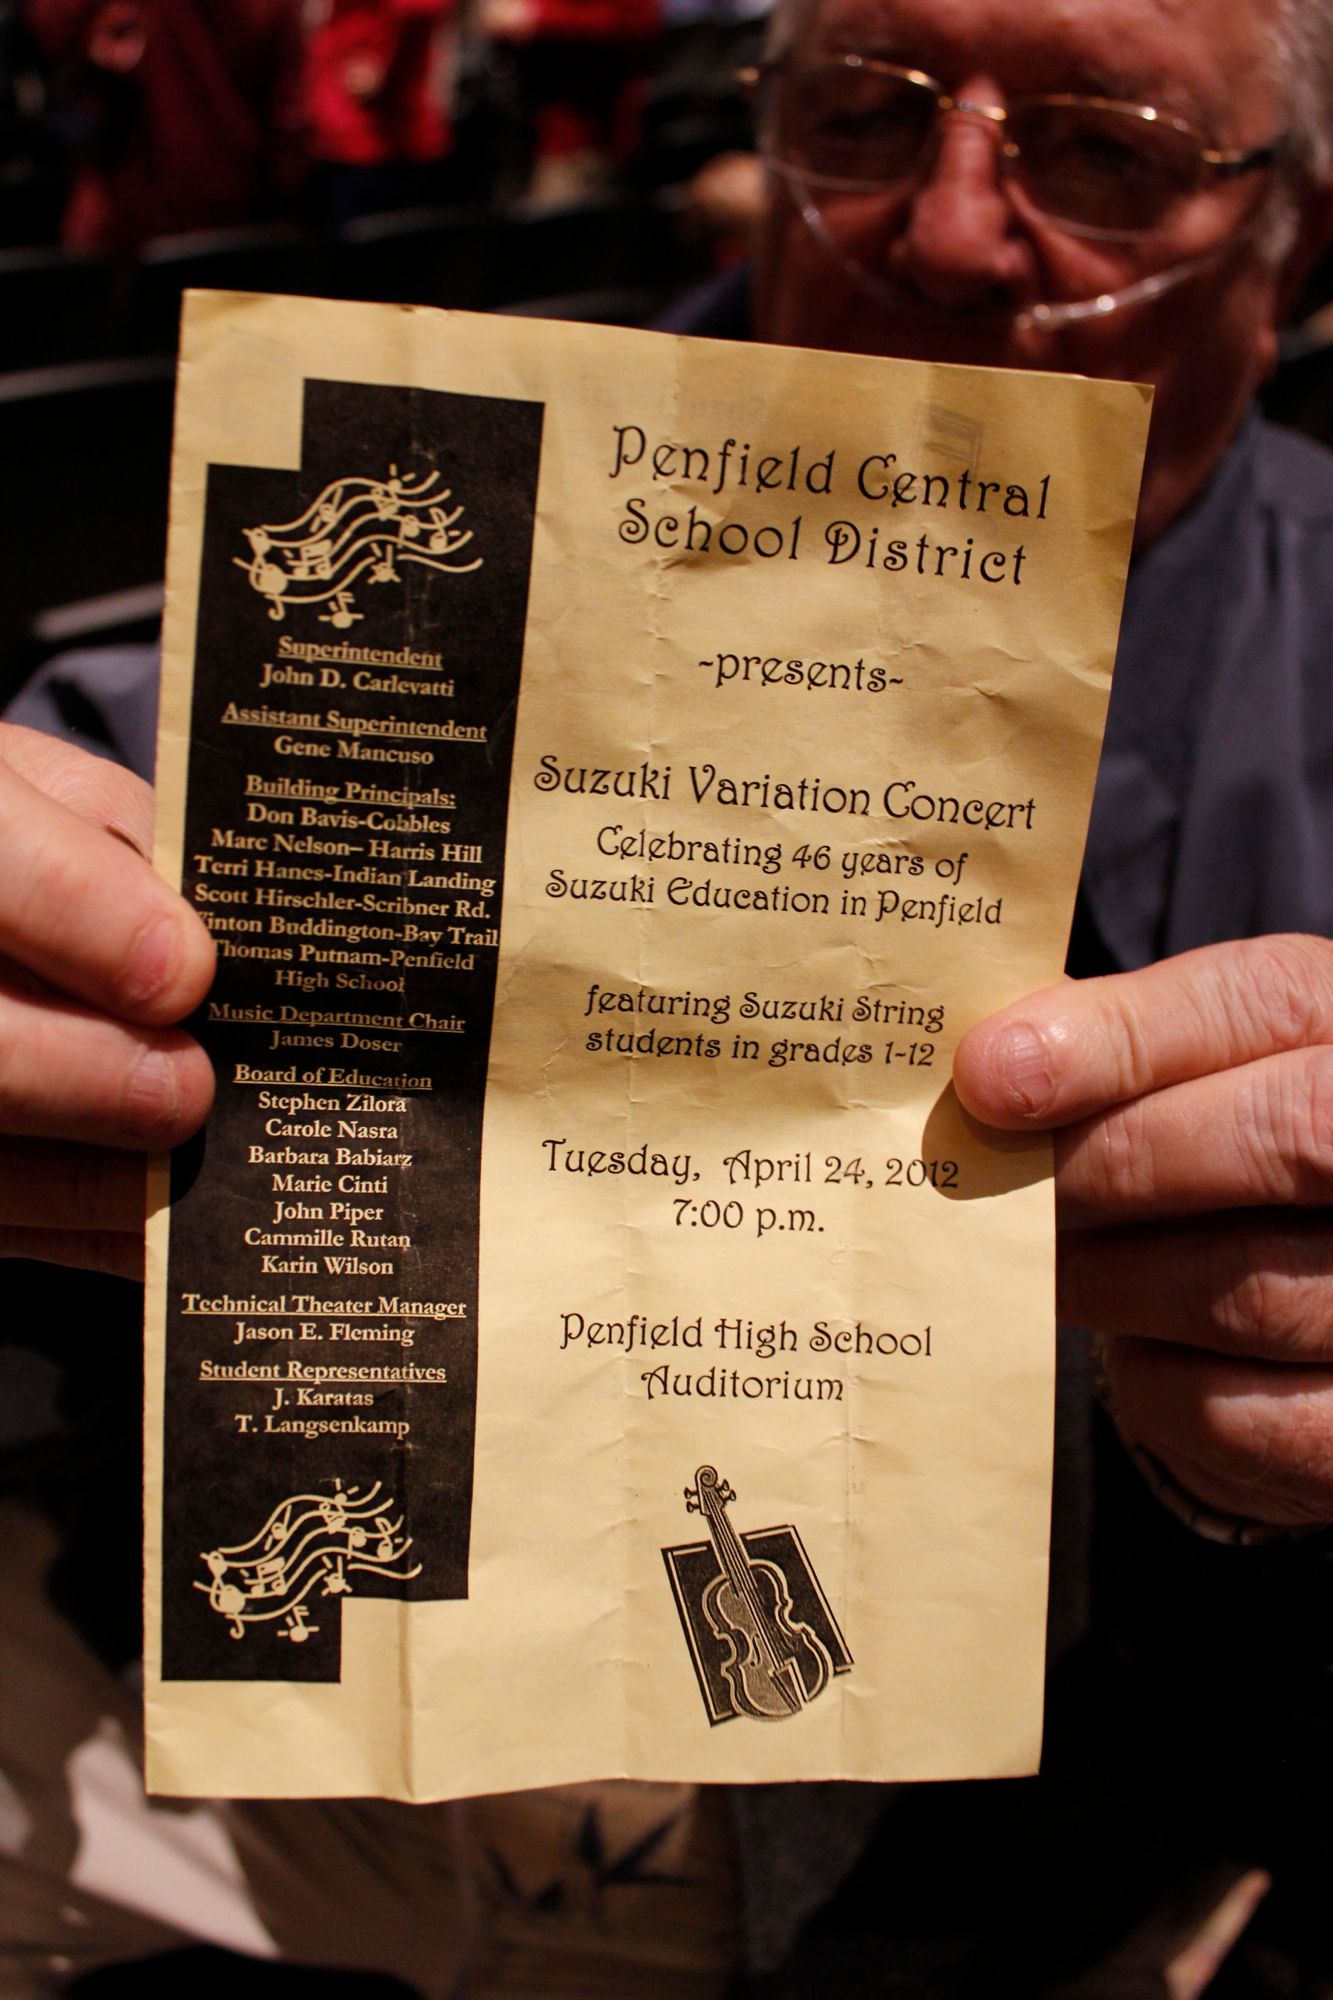 Penfield Central
School District
~presents~
Suzuki Variation Concert
Celebrating 46 years of
Suzuki Education in Penfield
featuring Suzuki String
students in grades 1-12
Tuesday, April 24, 2012
7:00 p.m.
Penfield High School
Auditorium
Superintendent
John D. Carlevatti
Assistant Superintendent
Gene Mancuso
Building Principals:
Don Bavis-Cobbles
Marc Nelson– Harris Hill
Terri Hanes-Indian Landing
Scott Hirschler-Scribner Rd.
Buddington-Bay Trail
Thomas Putnam-Penfield
High School
Music Department Chair
James Doser
Board of Education
Stephen Zilora
Carole Nasra
Barbara Babiarz
Marie Cinti
John Piper
Cammille Rutan
Karin Wilson
Technical Theater Manager
Jason E. Fleming
Student Representatives
J. Karatas
T. Langsenkamp